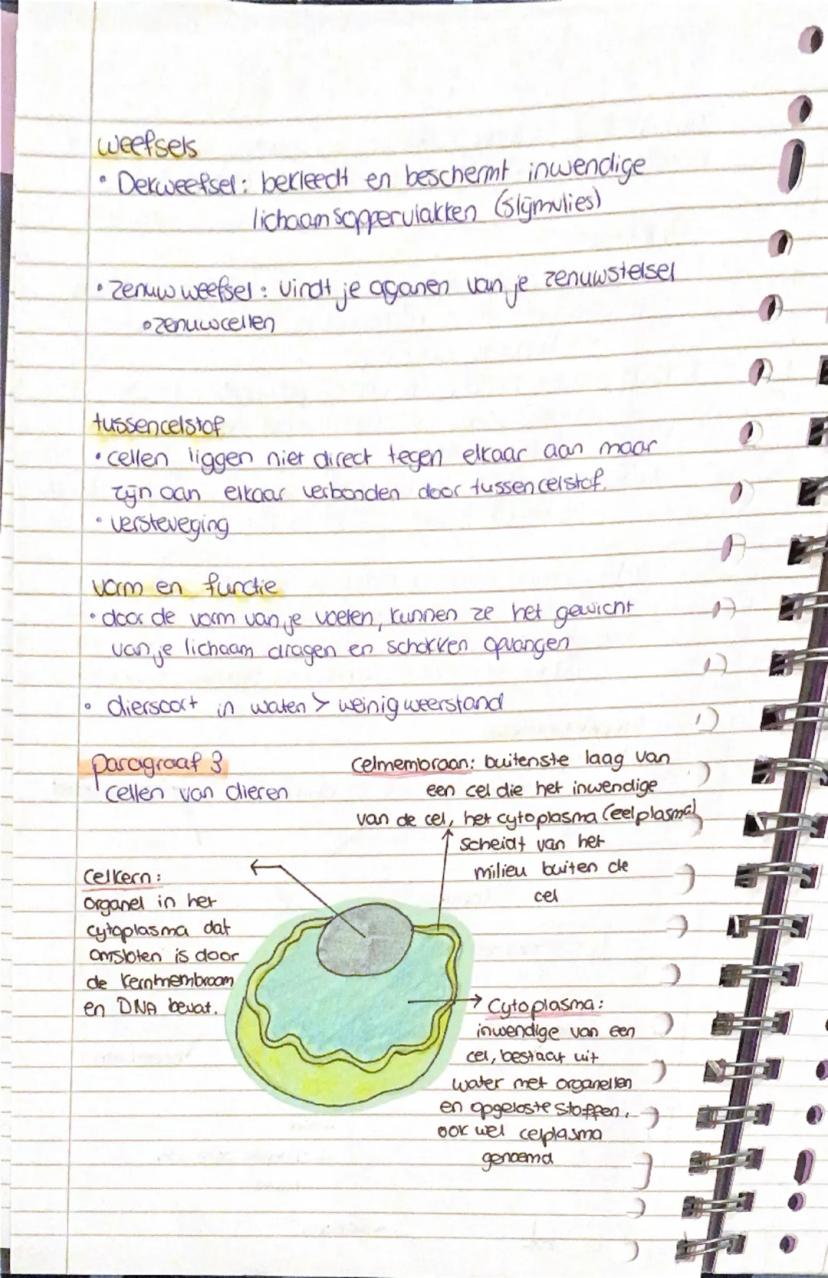 weefsels
• Dekweefsel: bekleedt en beschermt inwendige
lichaamsoppervlakken (slijmvlies)
• zenuwweefsel: vindt je oganen van je zenuwstelsel
• zenuwcellen
tussencelstof
• cellen liggen niet direct tegen elkaar aan maar
zijn aan elkaar verbonden door tussencelstof.
• versteveging
vorm en functie
• door de vorm van je voeten, kunnen ze het gewicht
van je lichaam dragen en schokken opvangen
• diersoort in water > weinig weerstand
paragraaf 3
cellen van dieren
celmembraan: buitenste laag van
een cel die het inwendige
van de cel, het cytoplasma (celplasma)
scheidt van het
milieu buiten de
cel
celkern:
organel in het
cytoplasma dat
omsloten is door
de kernmembraam
en DNA bevat.
Cytoplasma:
inwendige van een
cel, bestaat uit
water met organellen
en opgeloste stoffen,
ook wel celplasma
genoemd